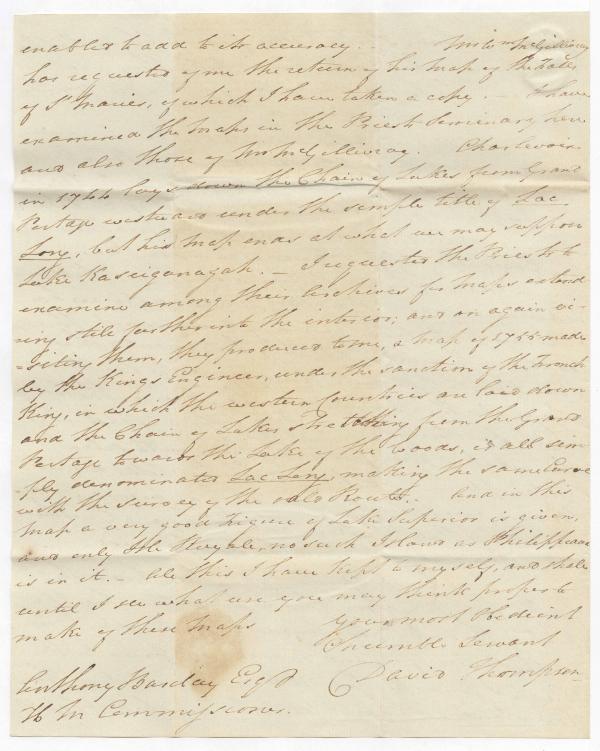 enabled to add to its accuracy. — Mr Wm McGillivray
has requested of me the return of his Map of the Falls
of St Maries, of which I have taken a copy. — I have
examined the Maps in the Priests Seminary here
and also those of Mr McGillivray. Charlevoix
in 1744 lays down the Chain of Lakes from Grand
Portage westward under the simple title of Lac
Long, but his Map ends at what we may suppose
Lake Kasciganagah. — I requested the Priests to
examine among their Archives for Maps extend
-ing still farther into the interior; and on again vi-
-siting them, they produced to me, a Map of 1755 made
by the Kings Engineer, under the sanction of the French
King, in which the western Countries are laid down
and the Chain of Lakes stretching from the Grand
Portage towards the Lake of the Woods, is all sim-
-ply denominated Lac Long, making the same Curve
with the survey of the old Route. And in this
Map a very good Figure of Lake Superior is given,
and only Isle Royale, no such Island as Philippeau
is in it. — All this I have kept to myself, and shall
until I see what use you may think proper to
make of these Maps your most Obedient
Humble Servant
Anthony Barclay Esqr David Thompson
H M Commissioner.